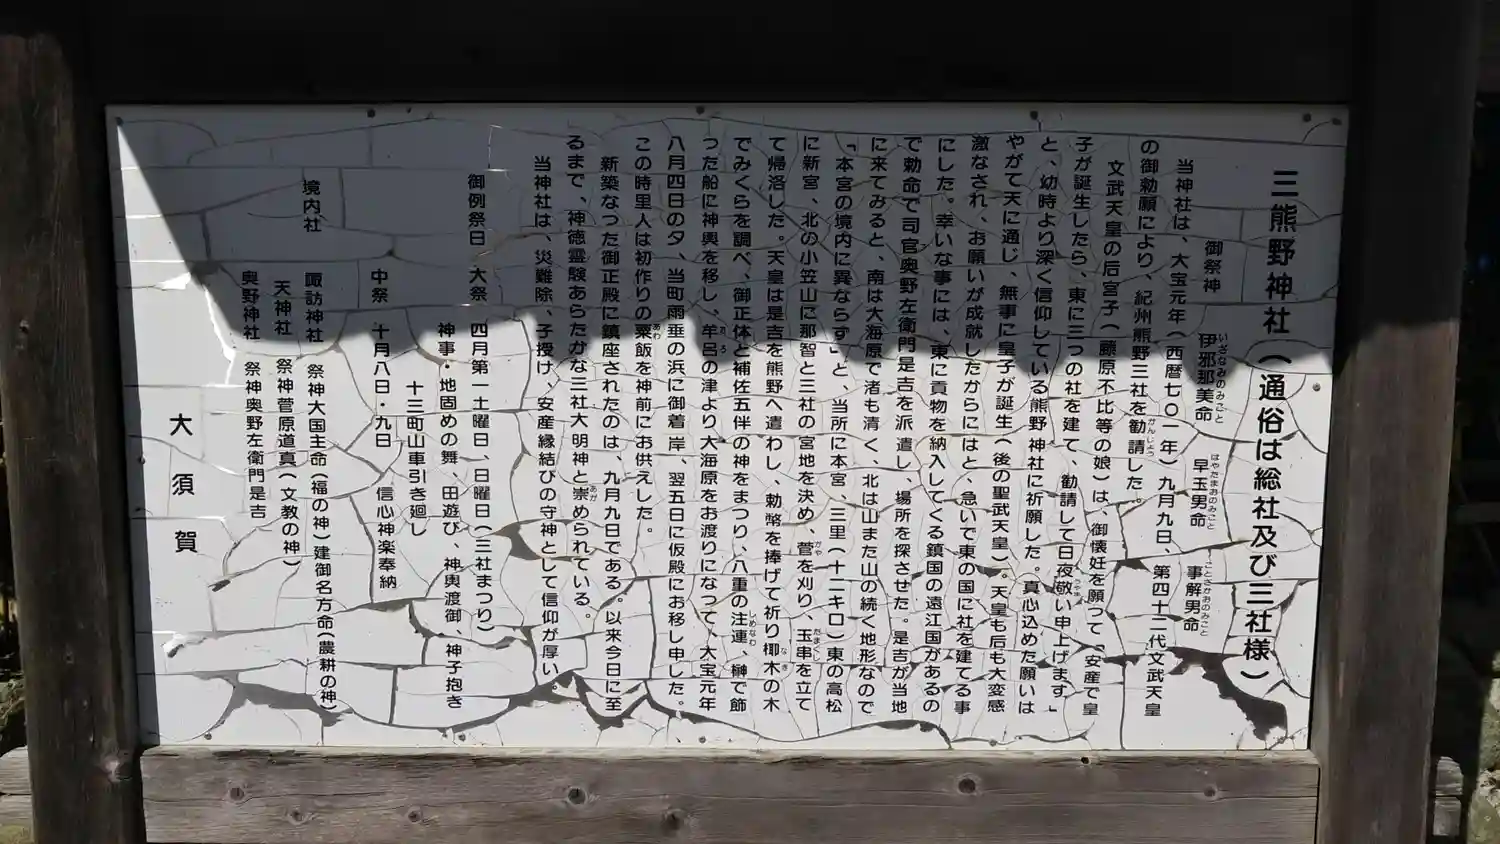 三熊野神社(通俗は総社及び三社様)
御祭神 伊邪那美命 早玉男命 事解男命
いざなみのみこと はやたまおのみこと ことさかおのみこと
当神社は、大宝元年(西暦七〇一年)九月九日、第四十二代文武天皇
の御勅願により、紀州熊野三社を勧請した。
がんじょう
文武天皇の后宮子(藤原不比等の娘)は、御懐妊を願つて「安産で皇
子が誕生したら、東に三つの社を建て、勧請して日夜敬い申上げます。」
と、幼時より深く信仰している熊野神社に祈願した。真心込めた願いは
やがて天に通じ、無事に皇子が誕生(後の聖武天皇)。天皇も后も大変感
激なされ、お願いが成就したからにはと、急いで東の国に社を建てる事
にした。幸いな事には、東に貢物を納入してくる鎮国の遠江国があるの
で勅命で司官奥野左衛門是吉を派遣し、場所を探させた。是吉が当地
に来てみると、南は大海原で渚も清く、北は山また山の続く地形なので
「本宮の境内に異ならず」と、当所に本宮、三里(十二キロ)東の高松
に新宮、北の小笠山に那智と三社の宮地を決め、菅を刈り、玉串を立て
がや たまぐし
て帰洛した。天皇は是吉を熊野へ遣わし、勅幣を捧げて祈り梛木の木
なぎ
でみくらを調べ、御正体と補佐五伴の神をまつり、八重の注連、榊で飾
しめなわ
った船に神輿を移し、牟呂の津より大海原をお渡りになつて、大宝元年
むろ
八月四日の夕、当町雨垂の浜に御着岸、翌五日に仮殿にお移し申した。
この時里人は初作りの粟飯を神前にお供えした。
あわ
新築なつた御正殿に鎮座されたのは、九月九日である。以来今日に至
るまで、神徳霊験あらたかな三社大明神と崇められている。
あが
当神社は、災難除、子授け、安産縁結びの守神として信仰が厚い。
御例祭日 大祭 四月第一土曜日、日曜日(三社まつり)
神事・地固めの舞、田遊び、神輿渡御、神子抱き
十三町山車引き廻し
中祭 十月八日・九日 信心神楽奉納
境内社 諏訪神社 祭神大国主命(福の神)建御名方命(農耕の神)
天神社 祭神菅原道真(文教の神)
奥野神社 祭神奥野左衛門是吉
大須賀